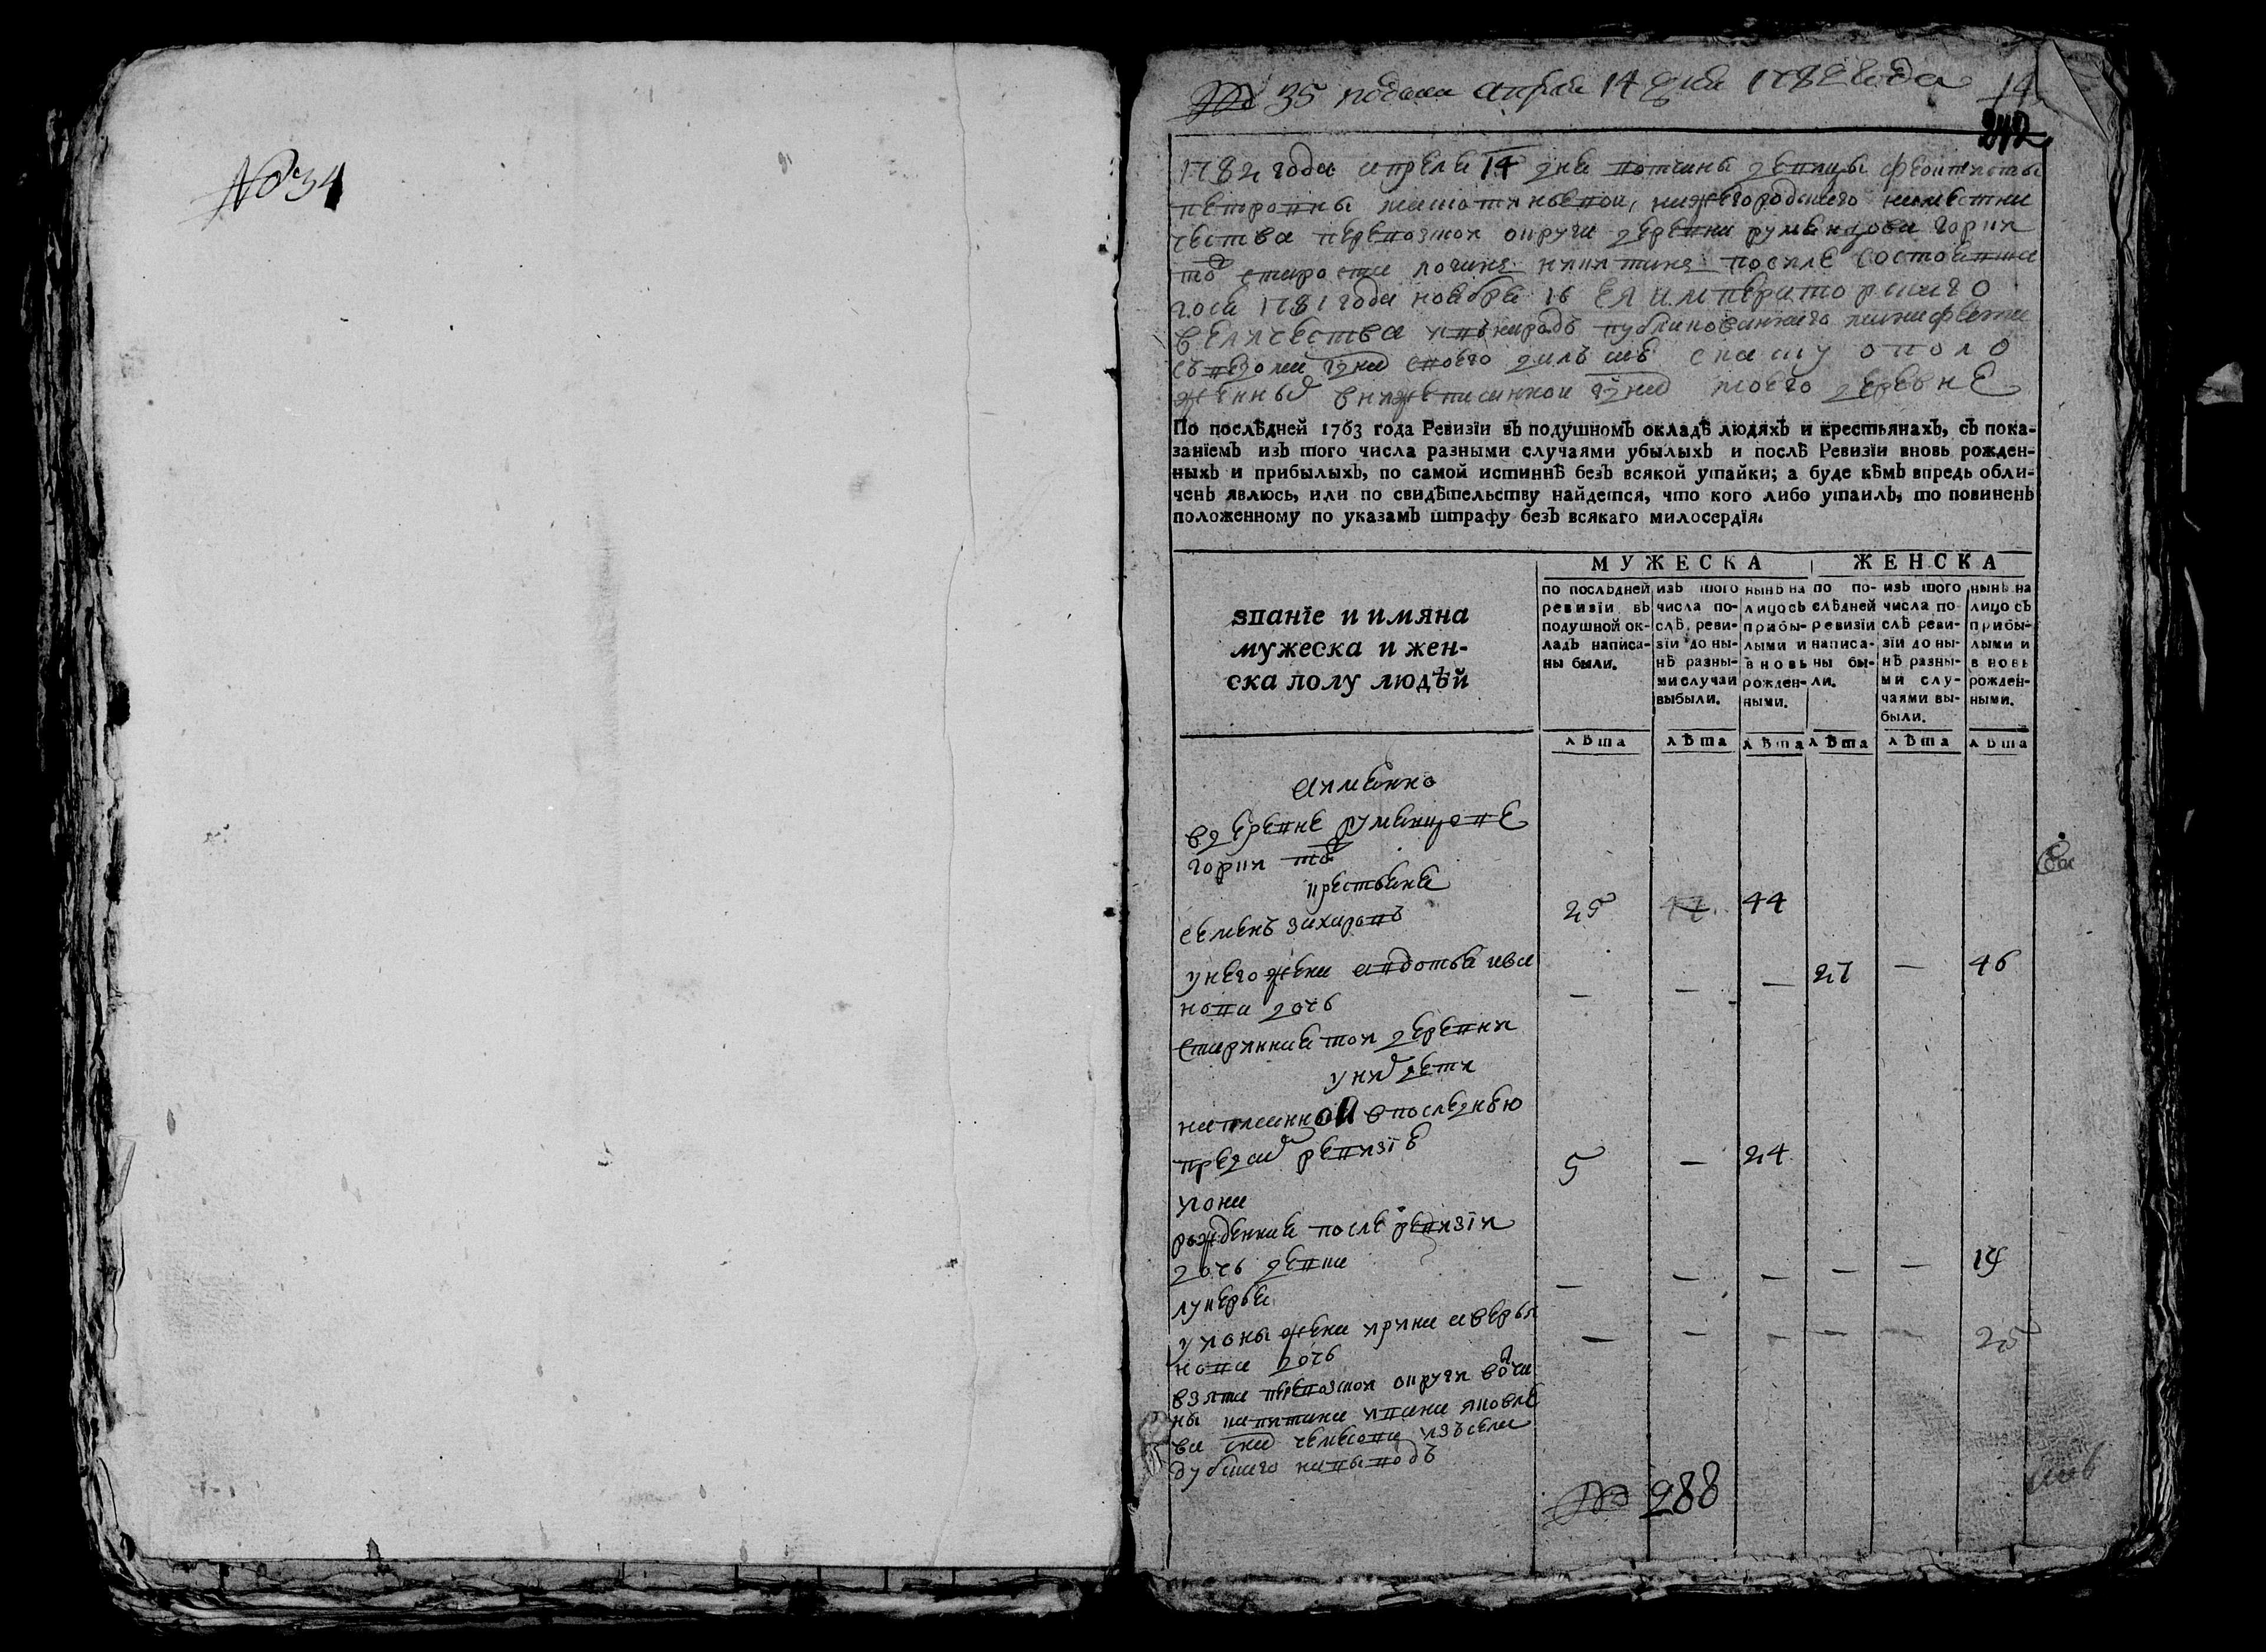 № 34
№ 35 подана апреля 14 дня 1782 года
14
242
1782 года апреля 14 дня вотчины девицы феоктисты
нижегородского наместни
чества перевозской округи деревни румянцова горки
тож старосты после состоявша
гося 1781 года ноября 16 ея императорского
величества и въ народъ публикованнаго манифеста
далъ сию скаску о поло
женных в нижеписанной моего деревне
По послѣдней 1763 года Ревизїи въ подушномъ окладѣ людяхъ и крестьянахъ, съ пока-
занїемъ изъ того числа разными случаями убылыхъ и послѣ Ревизїи вновь рожден-
ныхъ и прибылыхъ, по самой истиннѣ безъ всякой утайки; а буде кѣмъ впредь обли-
ченъ явлюсь, или по свидѣтельству найдется, что кого либо утаилъ, то повиненъ
положенному по указамъ штрафу безъ всякаго милосердїя.
званїе и имяна
мужеска и жен-
ска полу людѣй
МУЖЕСКА ЖЕНСКА
по послѣдней
ревизїи въ
подушной ок-
ладъ написа-
ны были.
изъ того
числа по-
слѣ реви-
зїи до ны-
нѣ разны-
ми случаи
выбыли.
нынѣ на
лицо съ
прибы-
лыми и
вновь
рожден-
ными.
по по-
слѣдней
ревизїи
написа-
ны бы-
ли.
изъ того
числа по-
слѣ реви-
зїи до ны-
нѣ разны-
ми слу-
чаями вы-
были.
нынѣ на
лицо съ
прибы-
лыми и
вновь
рожден-
ными.
лѣта лѣта лѣта лѣта лѣта лѣта
а именно
в деревне румянцове
горки тож
крестьяня
семенъ захаровъ 25 44
у него жена авдотья ива
нова дочь — — — 27 — 46
старинная той деревни
у них дети
написанной в последнею
пред сим ревизïю
иона 5 — 24
рожденная после ревизïи
дочь девка
лукерья — — — — — 19
у ионы жена ирина аверья
нова дочь — — — — — 25
взята перевозской округи вотчи
ны капитана ивана яковле
ва изъ села
дубскаго на выводъ
№ 288